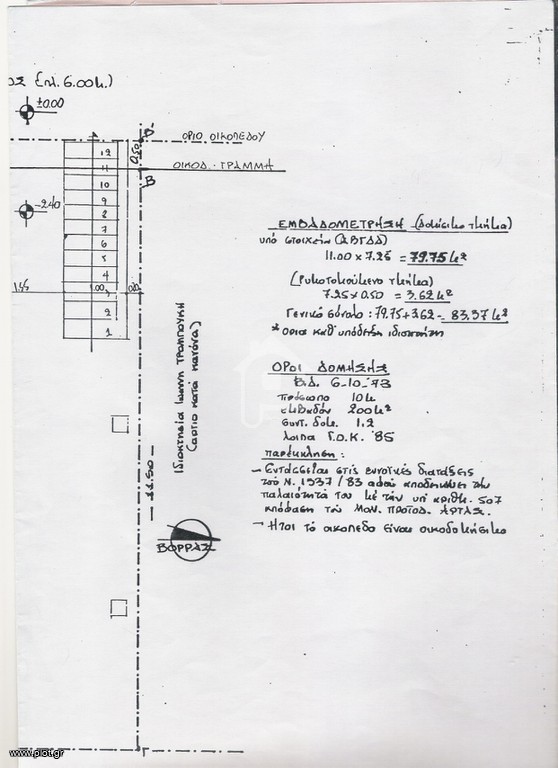 ΟΣ (πλ. 6.00μ.)
±0.00
ΟΡΙΟ ΟΙΚΟΠΕΔΟΥ
ΟΙΚΟΔ. ΓΡΑΜΜΗ
0.50
Β
12
11
10
9
8
7
6
5
4
3
2
1
-2.40
1.55
1.00
Ιδιοκτησία Ιωάννη ΤΡΑΜΠΟΥΚΗ
(άρτιο κατά κανόνα)
11.50
ΒΟΡΡΑΣ
Γ
ΕΜΒΑΔΟΜΕΤΡΗΣΗ (Δομήσιμο τμήμα)
υπό στοιχεία (ΑΒΓΔΑ)
11.00 x 7.25 = 79.75 μ²
(Ρυμοτομούμενο τμήμα)
7.25 x 0.50 = 3.62 μ²
Γενικό σύνολο: 79.75+3.62 = 83.37 μ²
* Όρια καθ' υπόδειξη ιδιοκτήτη
ΟΡΟΙ ΔΟΜΗΣΗΣ
Β.Δ. 6-10-73
πρόσωπο 10μ
εμβαδόν 200μ²
συντ. δομ. 1.2
λοιπα Γ.Ο.Κ. '85
παρέκκληση:
- Εντάσσεται στις ευνοϊκές διατάξεις
του Ν. 1337/83 αφού αποδεικνύει την
παλαιότητά του με την υπ' αριθμ. 507
απόφαση του Μον. Πρωτοδ. ΑΡΤΑΣ.
- Ήτοι το οικόπεδο είναι οικοδομήσιμο
www.plot.gr